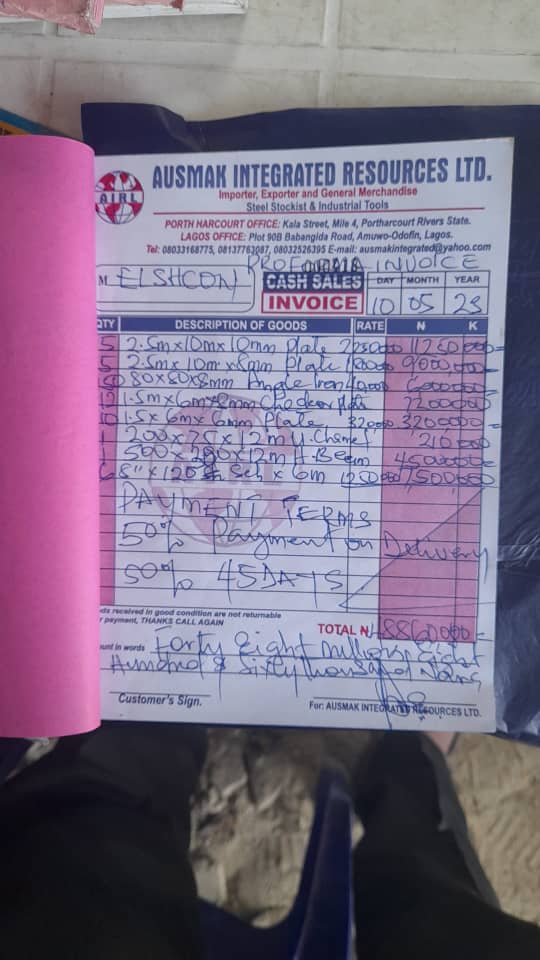 AUSMAK INTEGRATED RESOURCES LTD.
AIRL
Importer, Exporter and General Merchandise
Steel Stockist & Industrial Tools
PORTH HARCOURT OFFICE: Kala Street, Mile 4, Portharcourt Rivers State.
LAGOS OFFICE: Plot 90B Babangida Road, Amuwo-Odofin, Lagos.
Tel: 08033168775, 08137763087, 08032526395 E-mail: ausmakintegrated@yahoo.com
PROFORMA INVOICE
M ELSHCON CASH SALES INVOICE DAY MONTH YEAR
10 05 23
QTY DESCRIPTION OF GOODS RATE N K
5 2.5mx10mx10mm Plate 2250000 11250000=
5 2.5mx10mx8mm Plate 1800000 9000000=
80x80x8mm Angle Iron 40,000 6000000=
1.5mx6mx8mm Checker Plate 7200000
1.5x6mx6mm Plate 320000 3200000=
200x75x12m U.Channel 210,000
500x200x12m H.Beam 4500000=
6 8"x120 Sch x 6m 1250000 7,500000
PAYMENT TERMS
50% Payment on Delivery
50% 45 DAYS
ds received in good condition are not returnable
r payment, THANKS CALL AGAIN
TOTAL N 48860000=
unt in words Forty Eight million, Eight
Hundred & Sixty thousand Naira
Customer's Sign. For: AUSMAK INTEGRATED RESOURCES LTD.